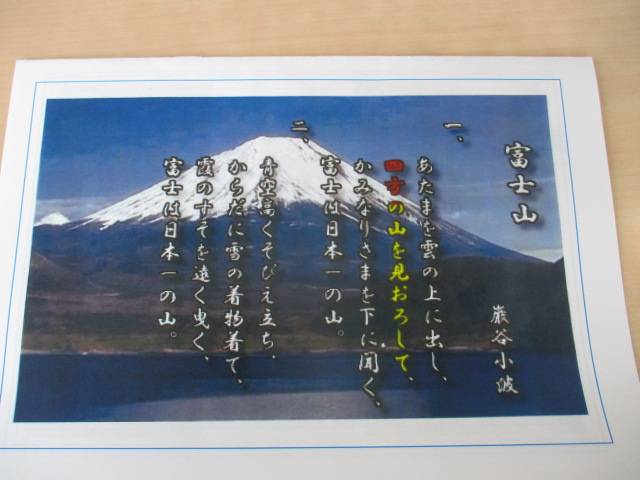 富士山
巌谷小波
一、
あたまを雲の上に出し、
四方の山を見おろして、
かみなりさまを下に聞く、
富士は日本一の山。
二、
青空高くそびえ立ち、
からだに雪の着物着て、
霞のすそを遠く曳く、
富士は日本一の山。